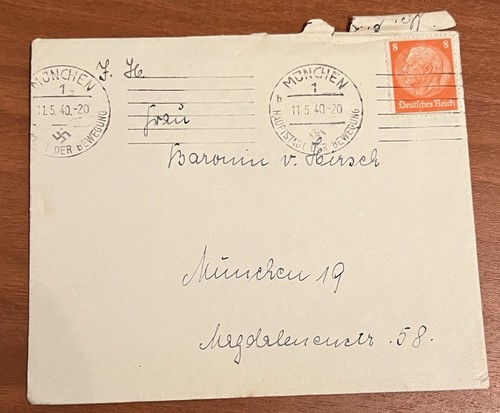 8 8
Deutsches Reich
MÜNCHEN
1
11.5.40.-20
DER BEWEGUNG
MÜNCHEN
1
b
11.5.40.-20
HAUPTSTADT DER BEWEGUNG
Frau
Baronin v. Hirsch
München 19
Magdalenenstr. 58.